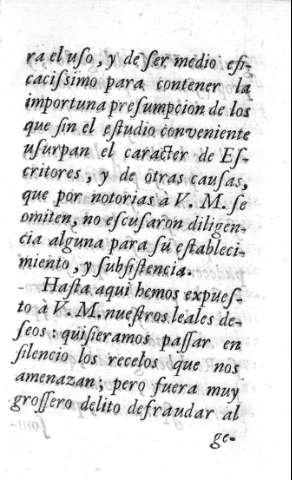 ra el uſo, y de ſer medio efi-
cacisſimo para contener la
importuna preſumpcion de los
que ſin el eſtudio conveniente
uſurpan el caracter de Eſ-
critores, y de otras cauſas,
que por notorias à V. M. ſe
omiten, no eſcuſaron diligen-
cia alguna para ſu eſtableci-
miento, y ſubſiſtencia.
Haſta aqui hemos expueſ-
to à V. M. nueſtros leales de-
ſeos: quiſieramos paſſar en
ſilencio los recelos que nos
amenazan; pero fuera muy
groſſero delito defraudar al
ge-